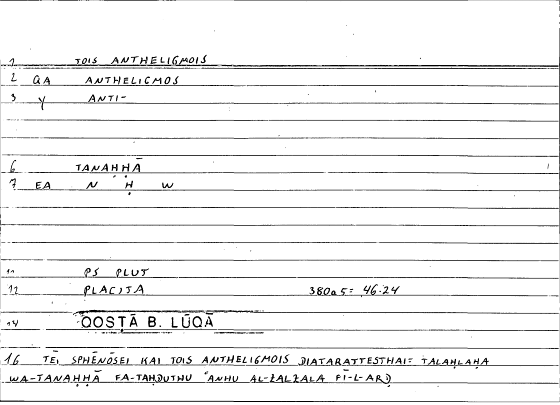 1 TOIS ANTHELIGMOIS
2 QA ANTHELIGMOS
3 Y ANTI-
6 TANAḤḤĀ
7 EA N Ḥ W
11 PS PLUT
12 PLACITA 380a5= 46.24
14 QOSṬĀ B. LŪQĀ
16 TĒI SPHĒNŌSEI KAI TOIS ANTHELIGMOIS DIATARATTESTHAI= TALAḤLAḤA
WA-TANAḤḤĀ FA-TAḤDUTHU ʿANHU AL-ZALZALA FĪ-L-ARḌ